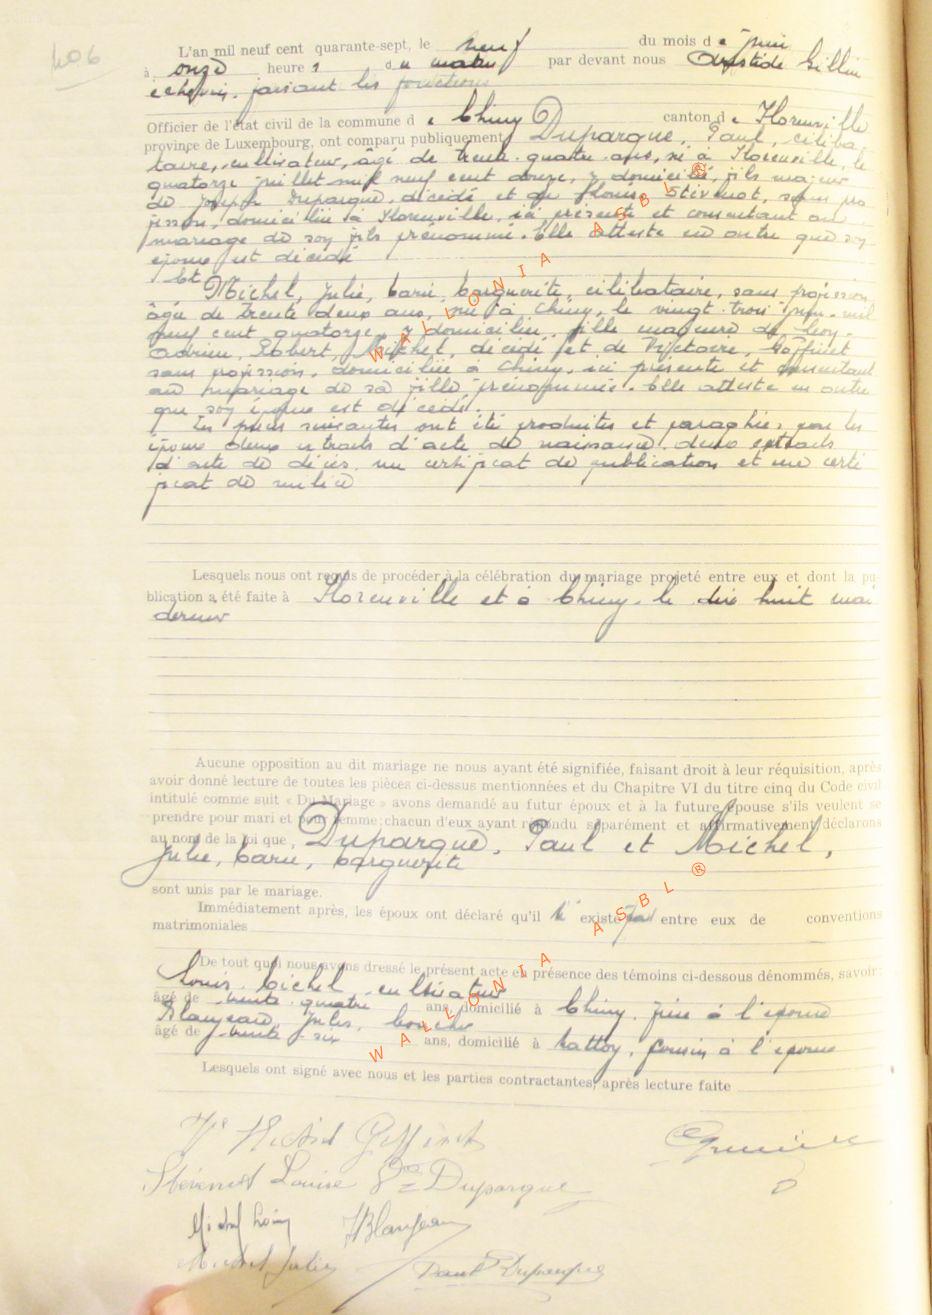 406
L'an mil neuf cent quarante-sept, le neuf du mois de juin
à onze heures du matin par devant nous Aristide Gillin
échevin, faisant les fonctions
Officier de l'état civil de la commune de Chiny canton de Florenville
province de Luxembourg, ont comparu publiquement Duparque, Paul, céliba-
taire, cultivateur, âgé de trente-quatre ans, né à Florenville, le
quatorze juillet mil neuf cent douze, y domicilié, fils majeur
de Joseph Duparque, décédé et de Stévenot, sans pro
fession, domiciliée à Florenville, ici présente et consentant au
mariage de son fils prénommé. Elle atteste en outre que son
époux est décédé
Et Michel, Julie, Marie, Marguerite, célibataire, sans profession
âgée de trente deux ans, née à Chiny, le vingt-trois juin mil
neuf cent quatorze, y domiciliée, fille majeure de Léon,
Adrien, Robert, Michel, décédé et de Victoire, Goffinet
sans profession, domiciliée à Chiny, ici présente et consentant
au mariage de sa fille prénommée. Elle atteste en outre
que son époux est décédé.
Les pièces suivantes ont été produites et paraphées par les
époux deux extraits d'acte de naissance deux extraits
d'acte de décès, un certificat de publication et un certi
ficat de milice
Lesquels nous ont requis de procéder à la célébration du mariage projeté entre eux et dont la pu-
blication a été faite à Florenville et à Chiny, le dix huit mai
dernier
Aucune opposition au dit mariage ne nous ayant été signifiée, faisant droit à leur réquisition, après
avoir donné lecture de toutes les pièces ci-dessus mentionnées et du Chapitre VI du titre cinq du Code civil
intitulé comme suit « Du Mariage » avons demandé au futur époux et à la future épouse s'ils veulent se
prendre pour mari et pour femme; chacun d'eux ayant répondu séparément et affirmativement déclarons
au nom de la loi que, Duparque, Paul et Michel,
Julie, Marie, Marguerite
sont unis par le mariage.
Immédiatement après, les époux ont déclaré qu'il n'existe pas entre eux de conventions
matrimoniales
De tout quoi nous avons dressé le présent acte en présence des témoins ci-dessous dénommés, savoir:
Louis Michel, cultivateur
âgé de trente quatre ans, domicilié à Chiny, frère à l'épouse
Blanjean, Jules, boucher
âgé de trente-six ans, domicilié à Lattoy, cousin à l'épouse
Lesquels ont signé avec nous et les parties contractantes, après lecture faite
Ve Michel Goffinet
Stévenot Louise Vve Duparque
Michel Louis JBlanjean
Michel Julie Paul Duparque
WALLONIA ASBL ®
WALLONIA ASBL ®